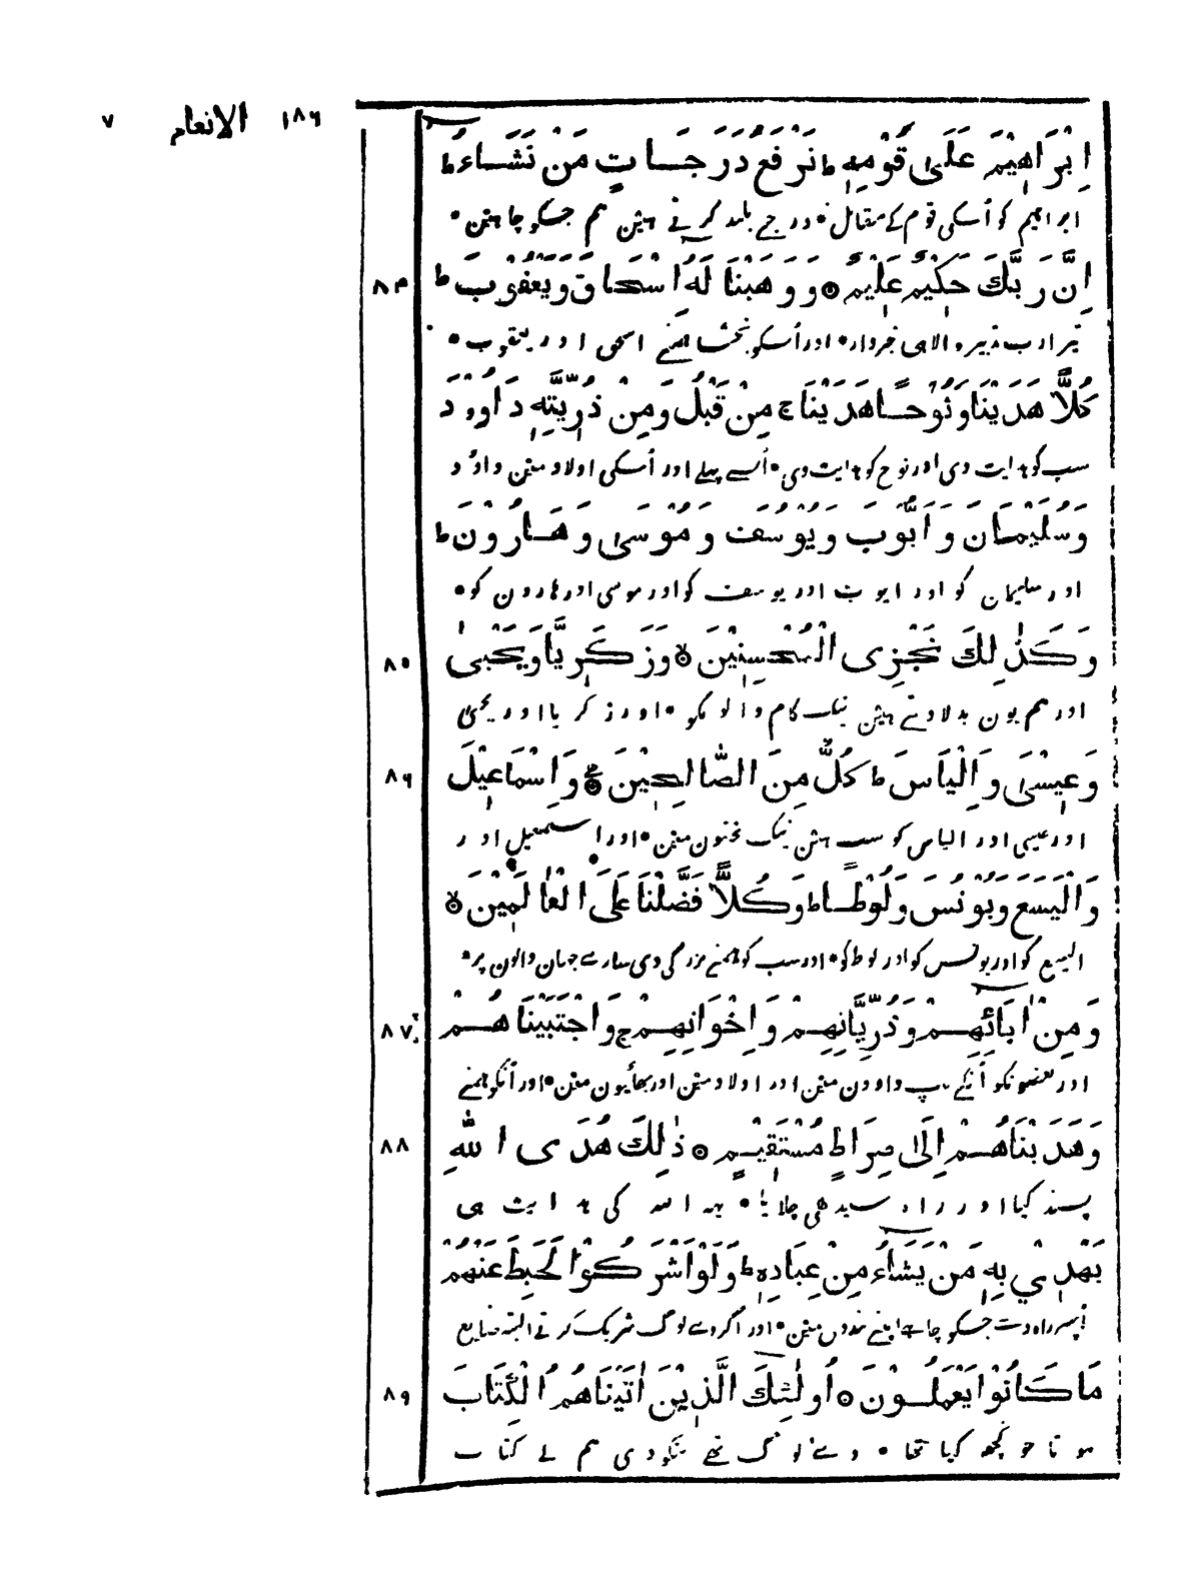 ١٨٦ الانعام ٧
اِبْرَاهِيْمَ عَلَىٰ قَوْمِهٖ ط نَرْفَعُ دَرَجَاتٍ مَنْ نَشَاءُ ط
ابراهيم كو أسكي قوم كے مقابل ٠ درجے بلند كرتے هيثن هم جسكو چاهتن ٠
اِنَّ رَبَّكَ حَكِيْمٌ عَلِيْمٌ ۞ وَوَهَبْنَا لَهُ اِسْحَاقَ وَيَعْقُوْبَ ط ٨٤
تيرا رب تدبير والا هي خبردار ٠ اور أسكو بخشا همنے اسحق اور يعقوب ٠
كُلًّا هَدَيْنَا وَنُوْحًا هَدَيْنَا ج مِنْ قَبْلُ وَمِنْ ذُرِّيَّتِهٖ دَاوُدَ
سب كو هدايت دي اور نوح كو هدايت دي ٠ أسے پہلے اور أسكي اولاد مثن داؤد
وَسُلَيْمَانَ وَاَيُّوْبَ وَيُوْسُفَ وَمُوْسىٰ وَهَارُوْنَ ط
اور سليمان كو اور ايوب اور يوسف كو اور موسى اور هارون كو ٠
وَكَذٰلِكَ نَجْزِى الْمُحْسِنِيْنَ ۞ وَزَكَرِيَّا وَيَحْيىٰ ٨٥
اور هم يون بدلا ديتے هيثن نيك كام والونكو ٠ اور زكريا اور يحيىٰ
وَعِيْسىٰ وَاِلْيَاسَ ط كُلٌّ مِنَ الصَّالِحِيْنَ ۞ وَاِسْمَاعِيْلَ ٨٦
اور عيسى اور الياس كو سب هيثن نيك بختون مثن ٠ اور اسمعيل اور
وَالْيَسَعَ وَيُوْنُسَ وَلُوْطًا ط وَكُلًّا فَضَّلْنَا عَلَى الْعَالَمِيْنَ ۞
اليسع كو اور يونس كو اور لوط كو ٠ اور سب كو همنے بزرگي دي سارے جهان والون پر ٠
وَمِنْ اٰبَائِهِمْ وَذُرِّيَّاتِهِمْ وَاِخْوَانِهِمْ ج وَاجْتَبَيْنَاهُمْ ٨٧
اور بعضونكو أنكے باپ دادون مثن اور اولاد مثن اور بھائيون مثن ٠ اور أنكو همنے
وَهَدَيْنَاهُمْ اِلىٰ صِرَاطٍ مُسْتَقِيْمٍ ۞ ذٰلِكَ هُدَى اللهِ ٨٨
پسند كيا اور راه سيدهي چلايا ٠ يهہ الله كي هدايت هي
يَهْدِيْ بِهٖ مَنْ يَشَاءُ مِنْ عِبَادِهٖ ط وَلَوْ اَشْرَكُوْا لَحَبِطَ عَنْهُمْ
أپسر راه دے جسكو چاهے اپنے بندون مثن ٠ اور اگر وے لوگ شريك كرتے البتہ ضايع
مَا كَانُوْا يَعْمَلُوْنَ ۞ اُولٰئِكَ الَّذِيْنَ اٰتَيْنَاهُمُ الْكِتَابَ ٨٩
هوتا جو كچھ كيا تھا ٠ وے لوگ تھے جنكو دي هم نے كتاب